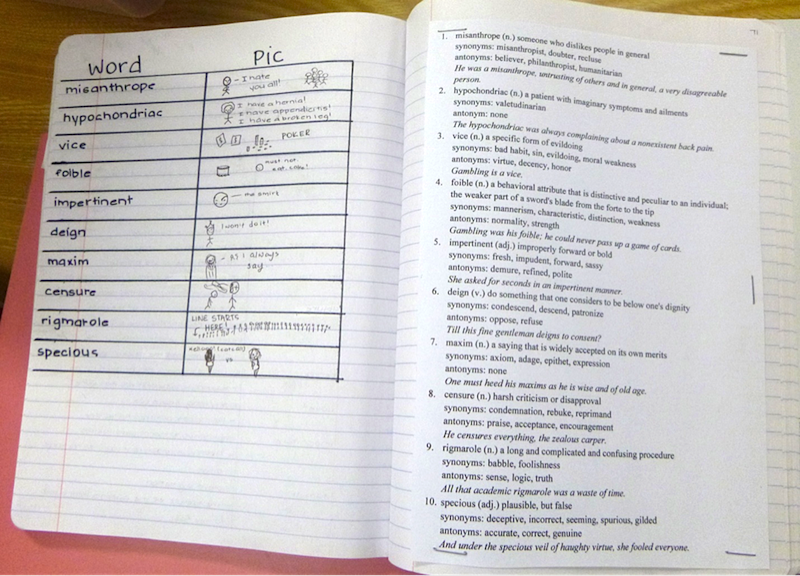 Word Pic
misanthrope
- I hate
you all!
hypochondriac
I have a hernia!
I have appendicitis!
I have a broken leg!
vice
POKER
foible
must not
eat cake!
impertinent
deign
I won't do it!
maxim
- As I always
say
censure
rigmarole
LINE STARTS
HERE!
specious
vs
1. misanthrope (n.) someone who dislikes people in general
synonyms: misanthropist, doubter, recluse
antonyms: believer, philanthropist, humanitarian
He was a misanthrope, untrusting of others and in general, a very disagreeable
person.
2. hypochondriac (n.) a patient with imaginary symptoms and ailments
synonyms: valetudinarian
antonym: none
The hypochondriac was always complaining about a nonexistent back pain.
3. vice (n.) a specific form of evildoing
synonyms: bad habit, sin, evildoing, moral weakness
antonyms: virtue, decency, honor
Gambling is a vice.
4. foible (n.) a behavioral attribute that is distinctive and peculiar to an individual;
the weaker part of a sword's blade from the forte to the tip
synonyms: mannerism, characteristic, distinction, weakness
antonyms: normality, strength
Gambling was his foible; he could never pass up a game of cards.
5. impertinent (adj.) improperly forward or bold
synonyms: fresh, impudent, forward, sassy
antonyms: demure, refined, polite
She asked for seconds in an impertinent manner.
6. deign (v.) do something that one considers to be below one's dignity
synonyms: condescend, descend, patronize
antonyms: oppose, refuse
Till this fine gentleman deigns to consent?
7. maxim (n.) a saying that is widely accepted on its own merits
synonyms: axiom, adage, epithet, expression
antonyms: none
One must heed his maxims as he is wise and of old age.
8. censure (n.) harsh criticism or disapproval
synonyms: condemnation, rebuke, reprimand
antonyms: praise, acceptance, encouragement
He censures everything, the zealous carper.
9. rigmarole (n.) a long and complicated and confusing procedure
synonyms: babble, foolishness
antonyms: sense, logic, truth
All that academic rigmarole was a waste of time.
10. specious (adj.) plausible, but false
synonyms: deceptive, incorrect, seeming, spurious, gilded
antonyms: accurate, correct, genuine
And under the specious veil of haughty virtue, she fooled everyone.